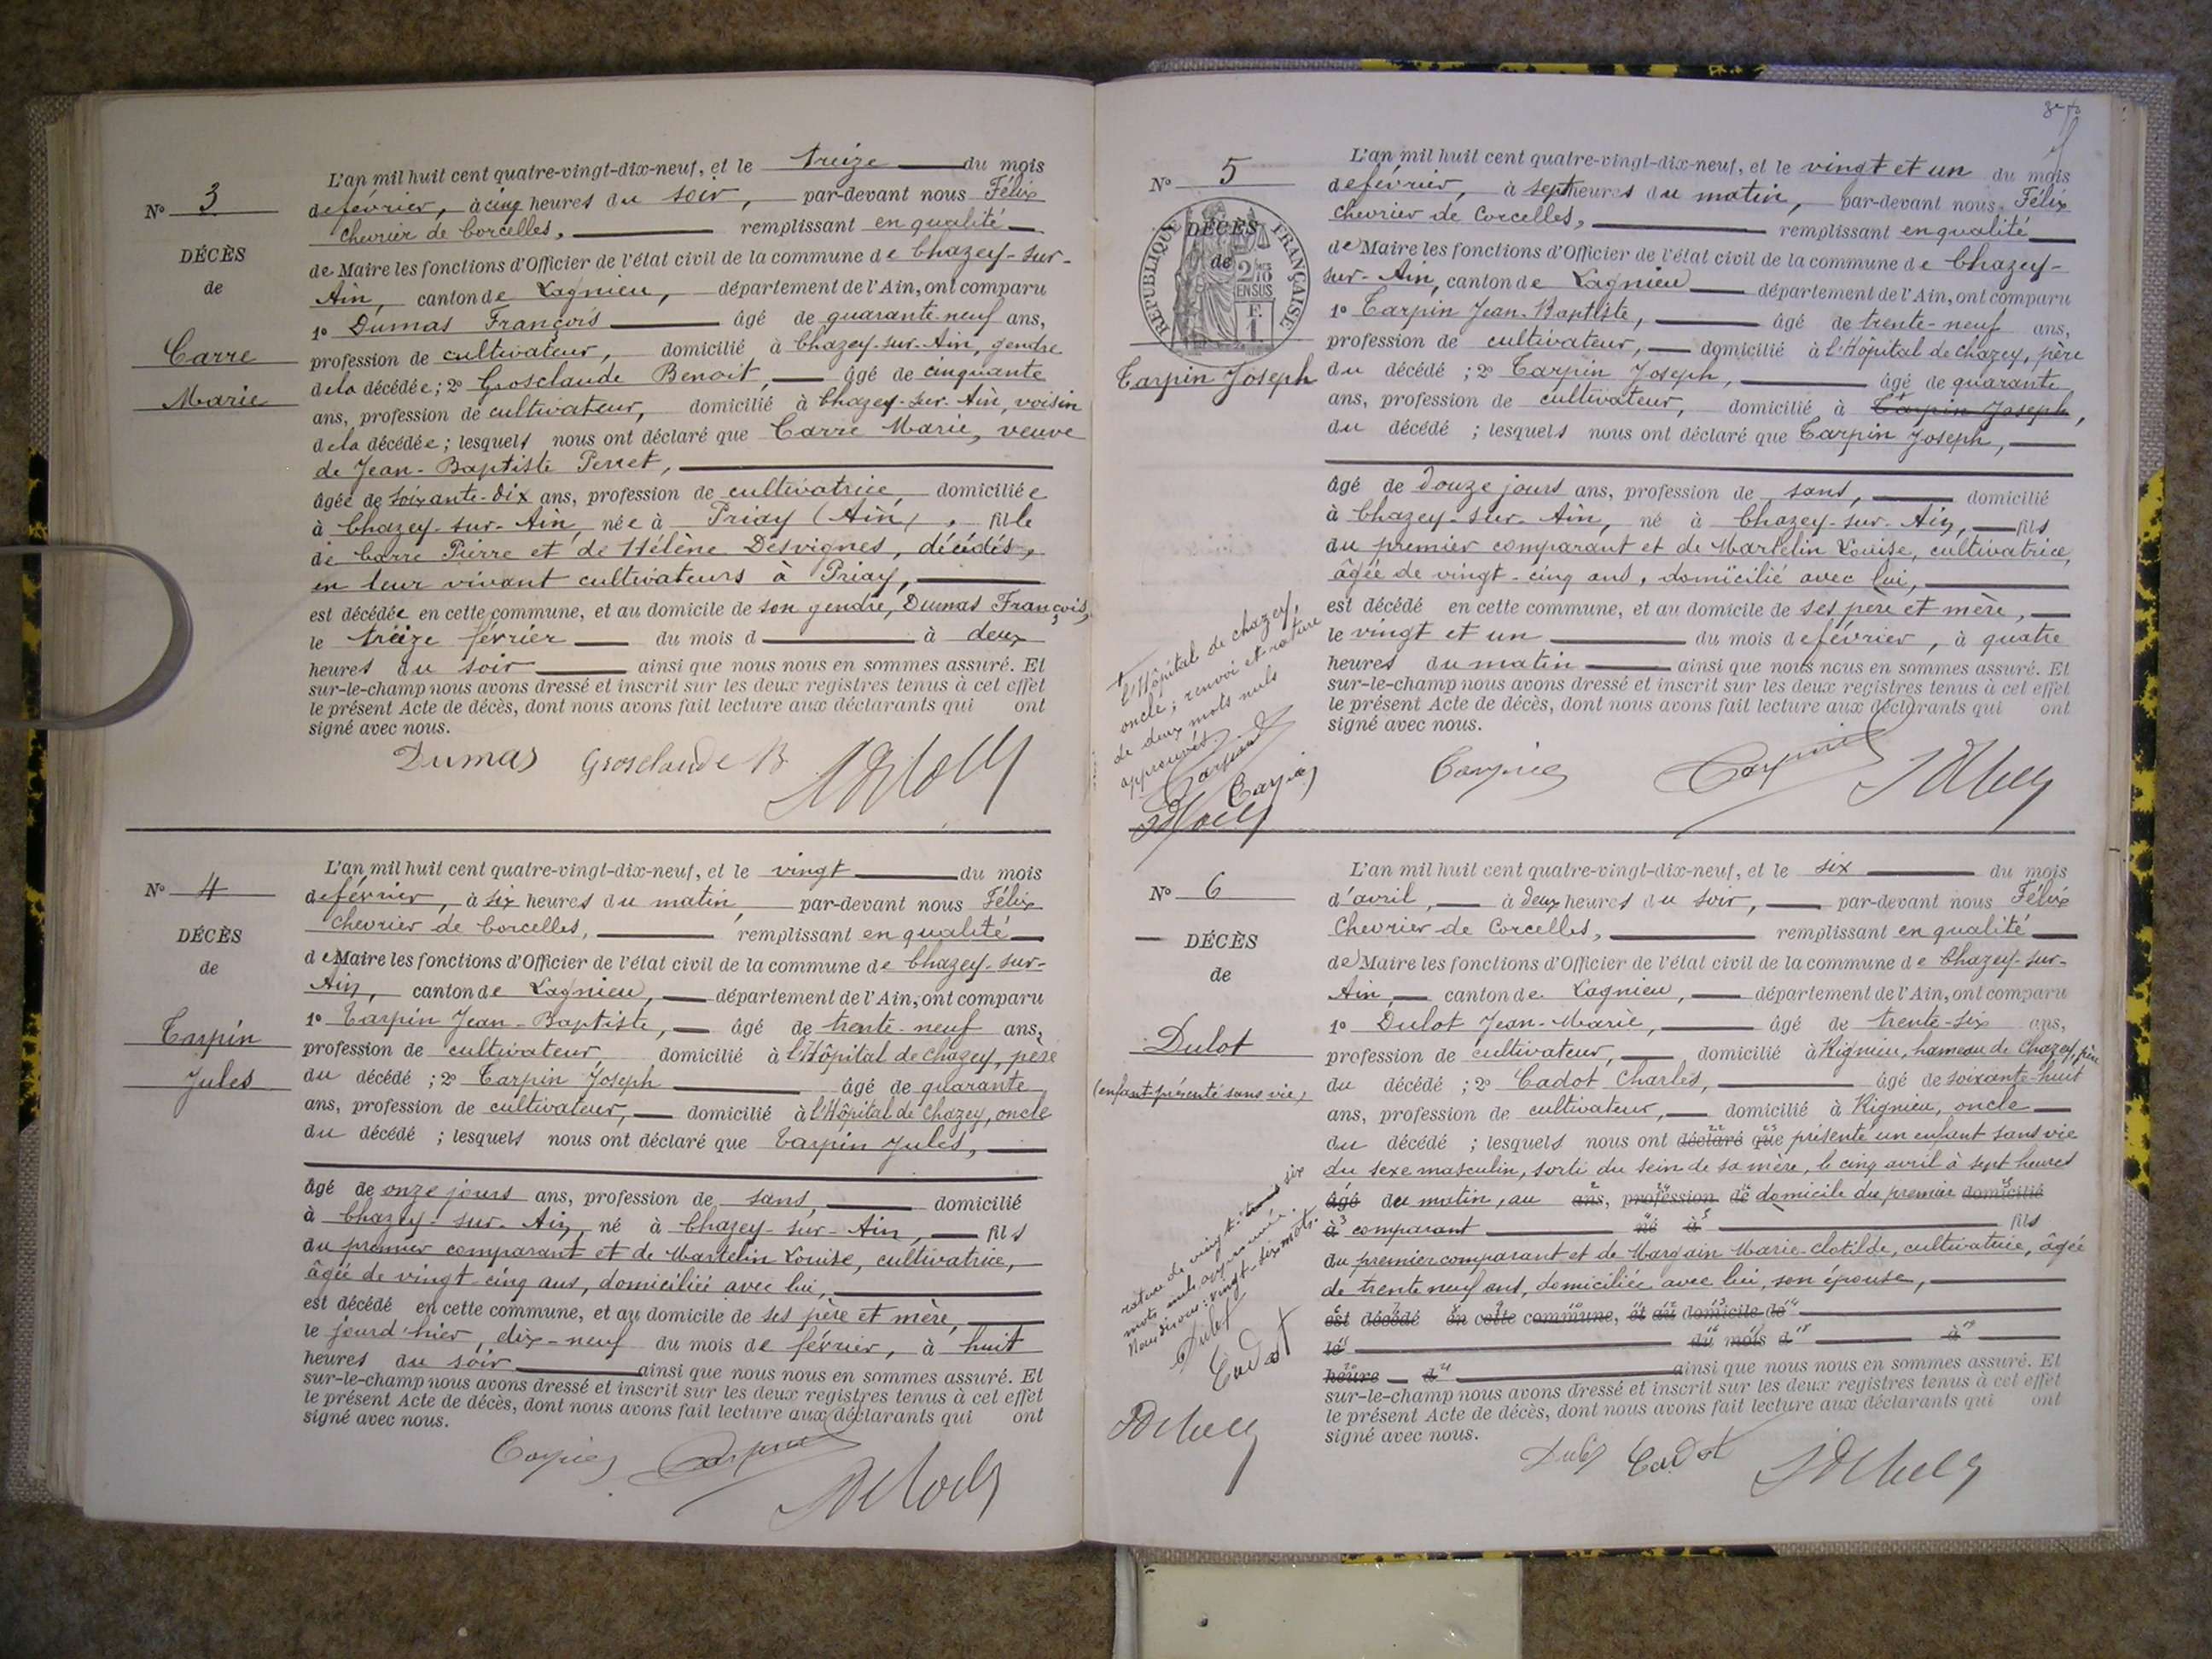 N° 3
DÉCÈS
de
Carre
Marie
L'an mil huit cent quatre-vingt-dix-neuf, et le treize du mois
de février, à cinq heures du soir, par-devant nous Félix
Chevrier de Corcelles, remplissant en qualité
de Maire les fonctions d'Officier de l'état civil de la commune de Chazey-sur-
Ain, canton de Lagnieu, département de l'Ain, ont comparu
1° Dumas François âgé de quarante-neuf ans,
profession de cultivateur, domicilié à Chazey-sur-Ain, gendre
de la décédée; 2° Grosclaude Benoit, âgé de cinquante
ans, profession de cultivateur, domicilié à Chazey-sur-Ain, voisin
de la décédée; lesquels nous ont déclaré que Carre Marie, veuve
de Jean-Baptiste Perret,
âgée de soixante-dix ans, profession de cultivatrice, domiciliée
à Chazey-sur-Ain, née à Priay (Ain), fille
de Carre Pierre et de Hélène Desvignes, décédés,
en leur vivant cultivateurs à Priay,
est décédée en cette commune, et au domicile de son gendre, Dumas François,
le treize février du mois d à deux
heures du soir ainsi que nous nous en sommes assuré. Et
sur-le-champ nous avons dressé et inscrit sur les deux registres tenus à cet effet
le présent Acte de décès, dont nous avons fait lecture aux déclarants qui ont
signé avec nous.
Dumas Grosclaude B
N° 4
DÉCÈS
de
Carpin
Jules
L'an mil huit cent quatre-vingt-dix-neuf, et le vingt du mois
de février, à six heures du matin, par-devant nous Félix
Chevrier de Corcelles, remplissant en qualité
de Maire les fonctions d'Officier de l'état civil de la commune de Chazey-sur-
Ain, canton de Lagnieu, département de l'Ain, ont comparu
1° Carpin Jean-Baptiste, âgé de trente-neuf ans,
profession de cultivateur, domicilié à l'Hôpital de Chazey, père
du décédé; 2° Carpin Joseph âgé de quarante
ans, profession de cultivateur, domicilié à l'Hôpital de Chazey, oncle
du décédé; lesquels nous ont déclaré que Carpin Jules,
âgé de onze jours ans, profession de sans, domicilié
à Chazey-sur-Ain, né à Chazey-sur-Ain, fils
du premier comparant et de Martelin Louise, cultivatrice,
âgée de vingt-cinq ans, domiciliée avec lui,
est décédé en cette commune, et au domicile de ses père et mère,
le jourd'hier, dix-neuf du mois de février, à huit
heures du soir ainsi que nous nous en sommes assuré. Et
sur-le-champ nous avons dressé et inscrit sur les deux registres tenus à cet effet
le présent Acte de décès, dont nous avons fait lecture aux déclarants qui ont
signé avec nous.
N° 5
DÉCÈS
de
RÉPUBLIQUE FRANÇAISE
2/10
EN SUS
F.
1
Carpin Joseph
L'an mil huit cent quatre-vingt-dix-neuf, et le vingt et un du mois
de février, à sept heures du matin, par-devant nous Félix
Chevrier de Corcelles, remplissant en qualité
de Maire les fonctions d'Officier de l'état civil de la commune de Chazey-
sur-Ain, canton de Lagnieu département de l'Ain, ont comparu
1° Carpin Jean-Baptiste, âgé de trente-neuf ans,
profession de cultivateur, domicilié à l'Hôpital de Chazey, père
du décédé; 2° Carpin Joseph, âgé de quarante
ans, profession de cultivateur, domicilié à Carpin Joseph,
du décédé; lesquels nous ont déclaré que Carpin Joseph,
âgé de douze jours ans, profession de sans, domicilié
à Chazey-sur-Ain, né à Chazey-sur-Ain, fils
du premier comparant et de Martelin Louise, cultivatrice,
âgée de vingt-cinq ans, domicilié avec lui,
est décédé en cette commune, et au domicile de ses père et mère,
le vingt et un du mois de février, à quatre
heures du matin ainsi que nous nous en sommes assuré. Et
sur-le-champ nous avons dressé et inscrit sur les deux registres tenus à cet effet
le présent Acte de décès, dont nous avons fait lecture aux déclarants qui ont
signé avec nous.
l'Hôpital de Chazey,
oncle; renvoi et rature
de deux mots nuls
approuvés.
N° 6
DÉCÈS
de
Dulot
(enfant présenté sans vie)
L'an mil huit cent quatre-vingt-dix-neuf, et le six du mois
d'avril, à deux heures du soir, par-devant nous Félix
Chevrier de Corcelles, remplissant en qualité
de Maire les fonctions d'Officier de l'état civil de la commune de Chazey-sur-
Ain, canton de Lagnieu, département de l'Ain, ont comparu
1° Dulot Jean-Marie, âgé de trente-six ans,
profession de cultivateur, domicilié à Rignieu, hameau de Chazey, père
du décédé; 2° Cadot Charles, âgé de soixante-huit
ans, profession de cultivateur, domicilié à Rignieu, oncle
du décédé; lesquels nous ont déclaré que présenté un enfant sans vie
du sexe masculin, sorti du sein de sa mère, le cinq avril à sept heures
âgé du matin, au ans, profession de domicile du premier domicilié
à comparant né à fils
du premier comparant et de Margain Marie-Clotilde, cultivatrice, âgée
de trente neuf ans, domiciliée avec lui, son épouse,
est décédé en cette commune, et au domicile de
le du mois d à
heure d ainsi que nous nous en sommes assuré. Et
sur-le-champ nous avons dressé et inscrit sur les deux registres tenus à cet effet
le présent Acte de décès, dont nous avons fait lecture aux déclarants qui ont
signé avec nous.
rature de vingt six
mots nuls approuvée.
Nous disons: vingt-six mots.
Dulot
Cadot
Cadot